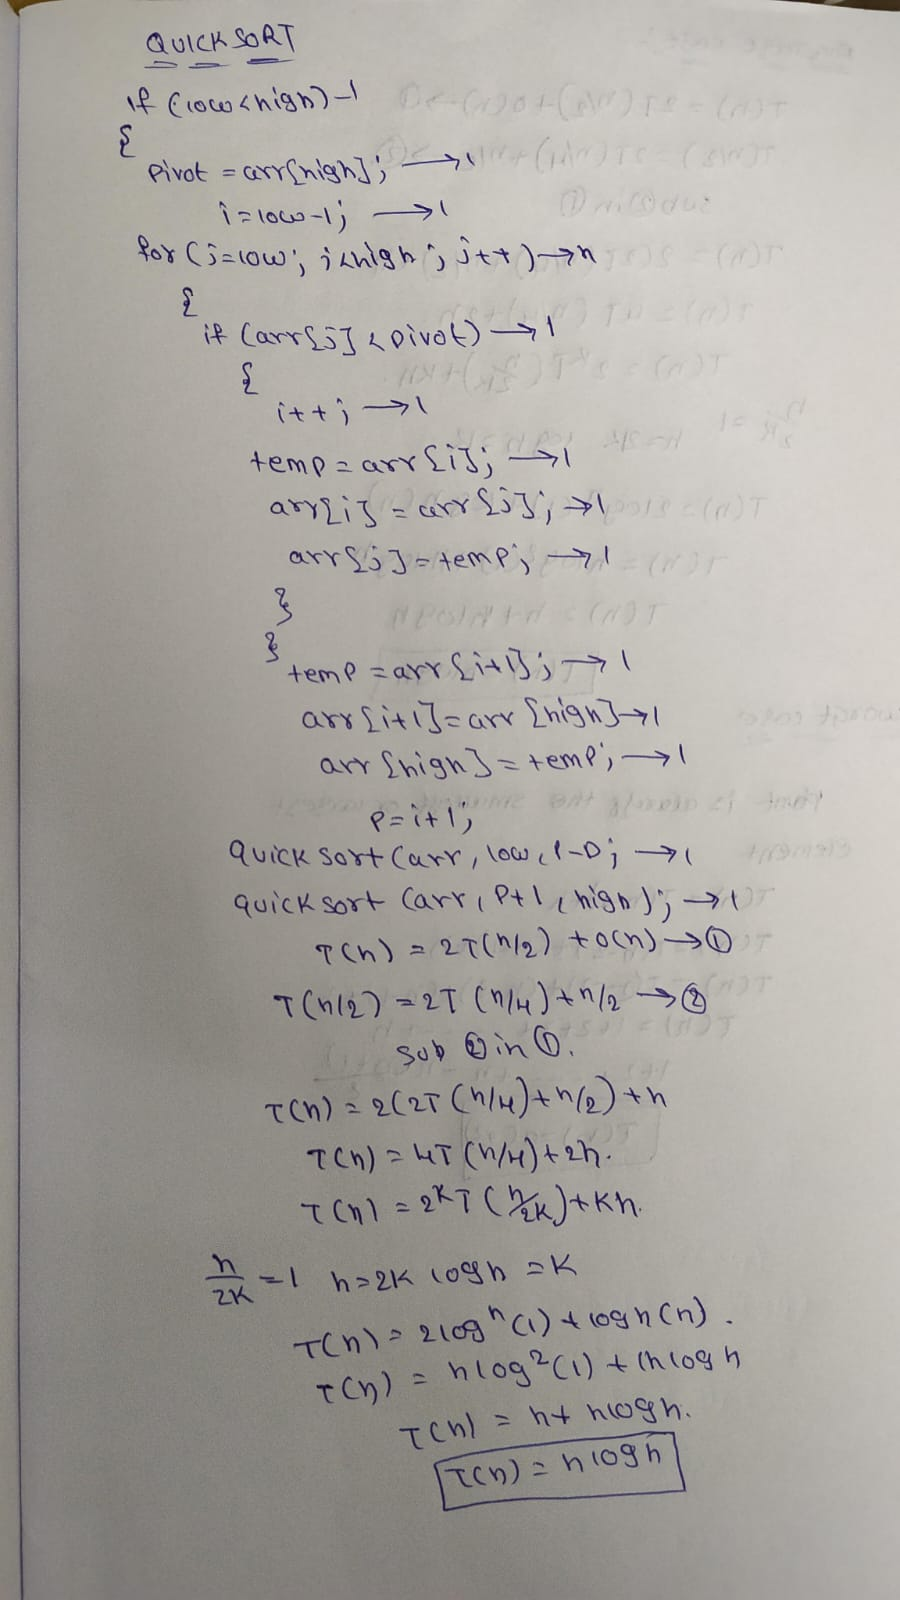 QUICK SORT
if (low<high)-1
{
pivot = arr[high]; →1
i=low-1; →1
for (j=low; j<high; j++)→n
{
if (arr[j] < pivot) →1
{
i++; →1
temp = arr[i]; →1
arr[i] = arr[j]; →1
arr[j] = temp; →1
}
}
temp = arr[i+1]; →1
arr[i+1]=arr[high]→1
arr[high] = temp; →1
P=i+1;
Quick sort (arr, low, P-1); →1
quick sort (arr, P+1, high); →1
T(n) = 2T(n/2) + o(n) →①
T(n/2) = 2T (n/4)+n/2 →②
sub ② in ①.
T(n) = 2(2T (n/4)+n/2)+n
T(n) = 4T (n/4)+2n.
T(n) = 2ᴷT (n/2K)+Kn.
n/2K =1 n=2K logn =K
T(n) = 2logⁿ(1) + logn(n).
T(n) = nlog²(1) + (nlogn
T(n) = n+ nlogn.
T(n) = nlogn